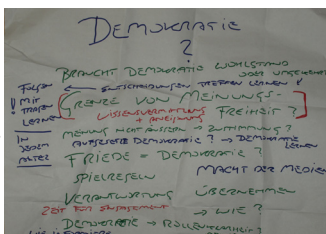 DEMOKRATIE
?
BRAUCHT DEMOKRATIE WOHLSTAND
ODER UNGEKEHRT
FOLGEN ← ENTSCHEIDUNGEN TREFFEN LERNEN!
! MIT TRAGEN LERNEN
[GRENZE VON MEINUNGS-
WISSENSVERMITTLUNG FREIHEIT?]
+ ANEIGNUNG
IN JEDEM ALTER
MEINUNG NICHT ÄUSSERN → ZUSTIMMUNG?
DEMOKRATIE? → DEMOKRATIE LERNEN
FRIEDE = DEMOKRATIE?
SPIELREGELN MACHT DER MEDIEN
VERANTWORTUNG ÜBERNEHMEN
ZEIT FÜR ENGAGEMENT → WIE?
DEMOKRATIE →